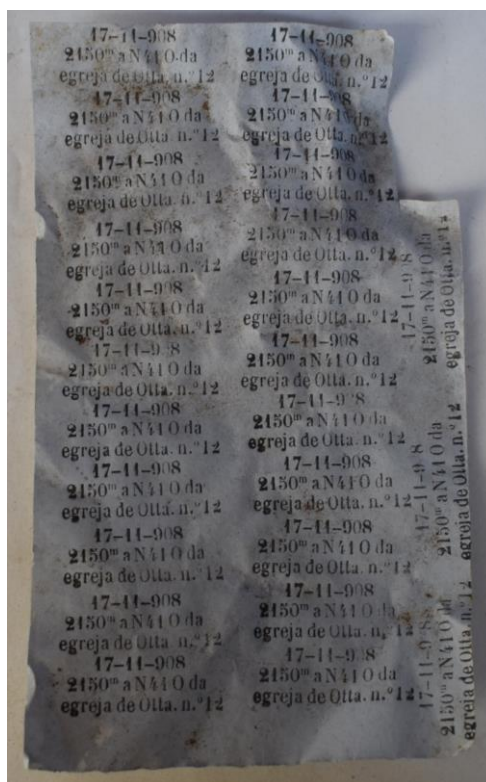 17-11-908
2150ᵐ a N 41 O da
egreja de Otta. n.º 12
17-11-908
2150ᵐ a N 41 O da
egreja de Otta. n.º 12
17-11-908
2150ᵐ a N 41 O da
egreja de Otta. n.º 12
17-11-908
2150ᵐ a N 41 O da
egreja de Otta. n.º 12
17-11-908
2150ᵐ a N 41 O da
egreja de Otta. n.º 12
17-11-908
2150ᵐ a N 41 O da
egreja de Otta. n.º 12
17-11-908
2150ᵐ a N 41 O da
egreja de Otta. n.º 12
17-11-908
2150ᵐ a N 41 O da
egreja de Otta. n.º 12
17-11-908
2150ᵐ a N 41 O da
egreja de Otta. n.º 12
17-11-908
2150ᵐ a N 41 O da
egreja de Otta. n.º 12
17-11-908
2150ᵐ a N 41 O da
egreja de Otta. n.º 12
17-11-908
2150ᵐ a N 41 O da
egreja de Otta. n.º 12
17-11-908
2150ᵐ a N 41 O da
egreja de Otta. n.º 12
17-11-908
2150ᵐ a N 41 O da
egreja de Otta. n.º 12
17-11-908
2150ᵐ a N 41 O da
egreja de Otta. n.º 12
17-11-908
2150ᵐ a N 41 O da
egreja de Otta. n.º 12
17-11-908
2150ᵐ a N 41 O da
egreja de Otta. n.º 12
17-11-908
2150ᵐ a N 41 O da
egreja de Otta. n.º 12
17-11-908
2150ᵐ a N 41 O da
egreja de Otta. n.º 12
17-11-908
2150ᵐ a N 41 O da
egreja de Otta. n.º 12
17-11-908
2150ᵐ a N 41 O da
egreja de Otta. n.º 12
17-11-908
2150ᵐ a N 41 O da
egreja de Otta. n.º 12
17-11-908
2150ᵐ a N 41 O da
egreja de Otta. n.º 12
17-11-908
2150ᵐ a N 41 O da
egreja de Otta. n.º 12
17-11-908
2150ᵐ a N 41 O da
egreja de Otta. n.º 12